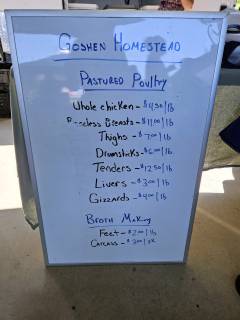 GOSHEN HOMESTEAD
PASTURED POULTRY
Whole chicken - $4.50/lb
Boneless Breasts - $11.00/lb
Thighs - $7.00/lb
Drumsticks - $6.00/lb
Tenders - $12.50/lb
Livers - $3.00/lb
Gizzards - $4.00/lb
BROTH MAKING
Feet - $2.00/lb
CARCASS - $3.00/